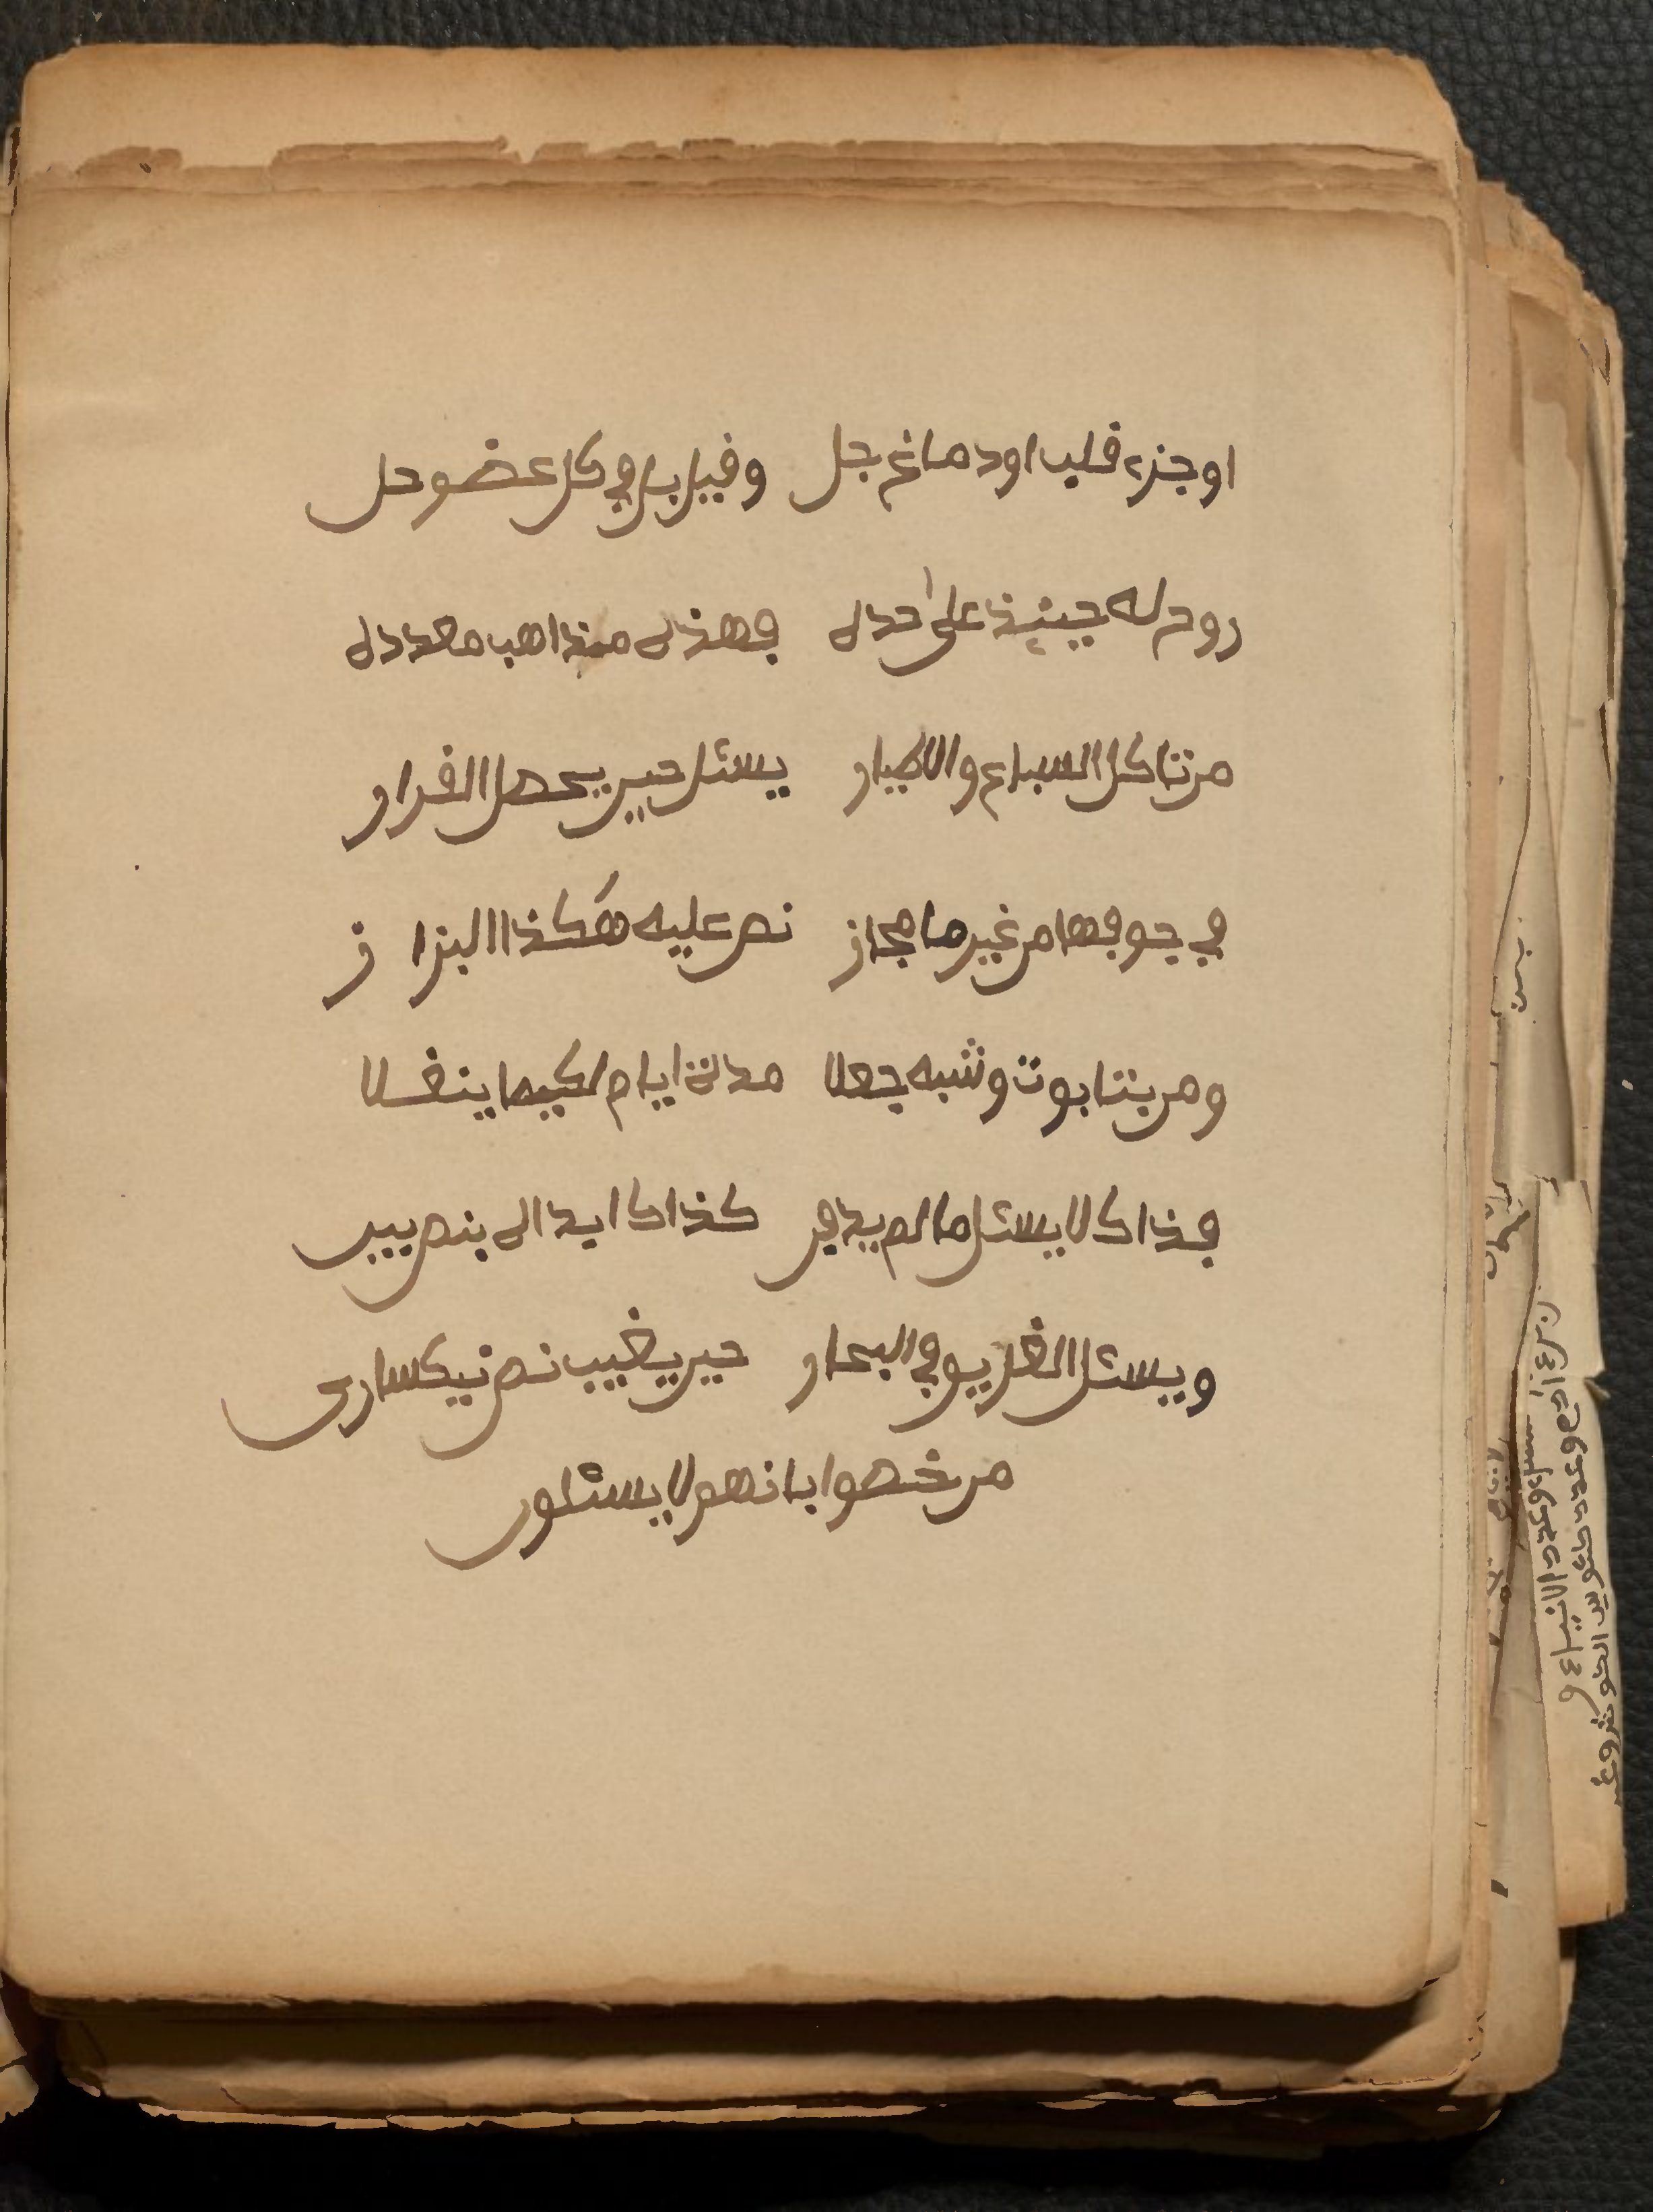 اوجزء قلب او دماغ جل وقيل بل في كل عضو حل
روح له حينئذ على حده فهذه مذاهب معدده
من تاكل السباع والاطيار يسئل حين يحصل القرار
في جوفها من غير ما مجاز نص عليه هكذا البزاز
ومن بتابوت وشبه جعلا مدة ايام لكيما ينقلا
فذاك لا يسئل ما لم يدفن كذاك ايدا له بنص بين
ويسئل الغريق في البحار حين يغيب نص نيكساري
من خصوا بانهم لا يسئلون